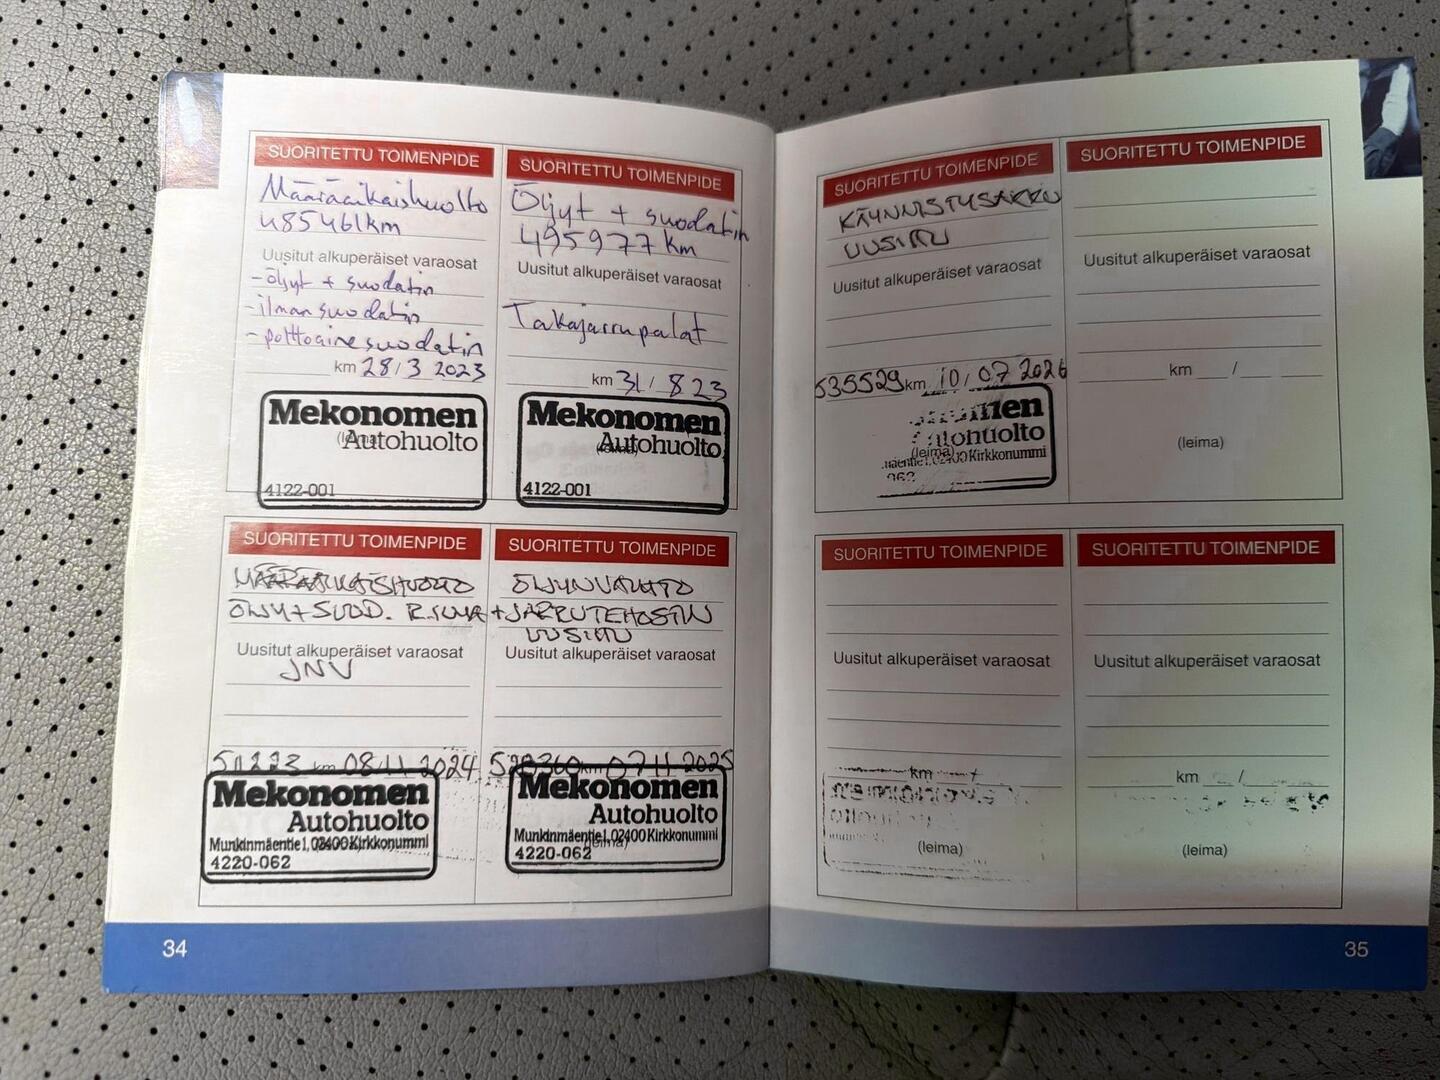 SUORITETTU TOIMENPIDE
Määräaikaishuolto
485461km
Uusitut alkuperäiset varaosat
-öljyt + suodatin
-ilmansuodatin
-polttoainesuodatin
km 28/3 2023
Mekonomen
(leima)
Autohuolto
4122-001
SUORITETTU TOIMENPIDE
Öljyt + suodatin
495977km
Uusitut alkuperäiset varaosat
Takajarrupalat
km 31/ 8 23
Mekonomen
(leima)
Autohuolto
4122-001
SUORITETTU TOIMENPIDE
MÄÄRÄAIKAISHUOLTO
ÖLJY+SUOD. R.ILMA
Uusitut alkuperäiset varaosat
JNV
km 08/11 2024
Mekonomen
Autohuolto
Munkinmäentie1, 02400 Kirkkonummi
4220-062
SUORITETTU TOIMENPIDE
ÖLJYNVAIHTO
+JARRUTEHOSTIN
UUSITTU
Uusitut alkuperäiset varaosat
km 07 11 2025
Mekonomen
Autohuolto
Munkinmäentie1, 02400 Kirkkonummi
4220-062
(leima)
34
SUORITETTU TOIMENPIDE
KÄYNNISTYSAKKU
UUSITTU
Uusitut alkuperäiset varaosat
535529km 10/07 2026
Autohuolto
(leima)
02400 Kirkkonummi
062
SUORITETTU TOIMENPIDE
Uusitut alkuperäiset varaosat
km /
(leima)
SUORITETTU TOIMENPIDE
Uusitut alkuperäiset varaosat
km /
(leima)
SUORITETTU TOIMENPIDE
Uusitut alkuperäiset varaosat
km /
(leima)
35